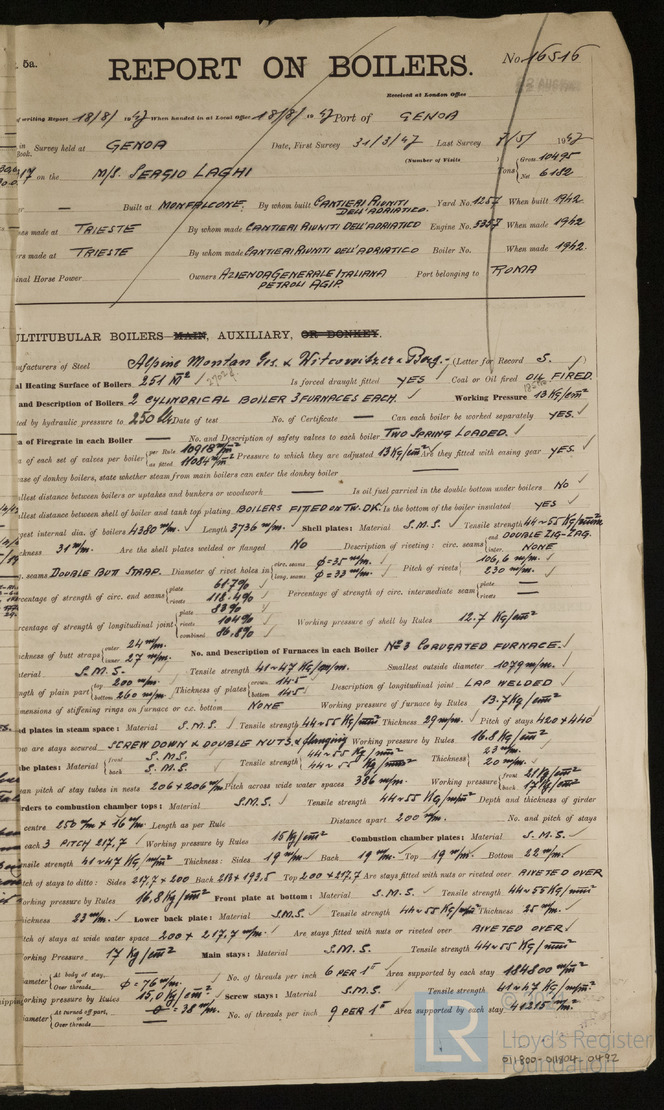 5a.
REPORT ON BOILERS.
No. 16516
Received at London Office
writing Report 18/8/ 1947 When handed in at Local Office 18/8/ 1947 Port of GENOA
Survey held at GENOA Date, First Survey 31/3/47 Last Survey 7/5/ 1947
(Number of Visits )
on the M/S. SERGIO LAGHI Tons { Gross 10495 Net 6182
Built at MONFALCONE. By whom built CANTIERI RIUNITI DELL'ADRIATICO. Yard No. 1257 When built 1942
made at TRIESTE By whom made CANTIERI RIUNITI DELL'ADRIATICO Engine No. 3357 When made 1942
made at TRIESTE By whom made CANTIERI RIUNITI DELL'ADRIATICO Boiler No. When made 1942.
Horse Power Owners AZIENDA GENERALE ITALIANA PETROLI AGIP. Port belonging to ROMA
ULTITUBULAR BOILERS MAIN, AUXILIARY, OR DONKEY.
ufacturers of Steel Alpine Montan Ges. & (Letter for Record S. )
al Heating Surface of Boilers 251 M² Is forced draught fitted YES Coal or Oil fired OIL FIRED.
and Description of Boilers 2 CYLINDRICAL BOILER 3 FURNACES EACH. Working Pressure 13 Kg/cm²
ted by hydraulic pressure to 250 Date of test No. of Certificate — Can each boiler be worked separately YES.
a of Firegrate in each Boiler — No. and Description of safety valves to each boiler TWO SPRING LOADED.
a of each set of valves per boiler { per Rule 10918 m/m² as fitted 11084 m/m² Pressure to which they are adjusted 13 Kg/cm² Are they fitted with easing gear YES.
ase of donkey boilers, state whether steam from main boilers can enter the donkey boiler —
llest distance between boilers or uptakes and bunkers or woodwork — Is oil fuel carried in the double bottom under boilers NO
llest distance between shell of boiler and tank top plating BOILERS FITTED ON TW. DK. Is the bottom of the boiler insulated YES
gest internal dia. of boilers 4380 m/m. Length 3736 m/m. Shell plates: Material S.M.S. Tensile strength 44÷55 Kg/mm²
ckness 31 m/m. Are the shell plates welded or flanged NO Description of riveting: circ. seams { end DOUBLE ZIG-ZAG. inter. NONE
g. seams DOUBLE BUTT STRAP. Diameter of rivet holes in { circ. seams Φ=35 m/m. long. seams Φ=33 m/m. Pitch of rivets { 106,6 m/m. 230 m/m.
rcentage of strength of circ. end seams { plate 61.7% rivets 118.4% Percentage of strength of circ. intermediate seam { plate — rivets —
rcentage of strength of longitudinal joint { plate 83% rivets 104% combined 86.8% Working pressure of shell by Rules 12.7 Kg/cm²
ickness of butt straps { outer 24 m/m. inner 27 m/m. No. and Description of Furnaces in each Boiler No 3 CORUGATED FURNACE.
aterial S.M.S. Tensile strength 41÷47 Kg/m/m. Smallest outside diameter 1079 m/m.
ngth of plain part { top 200 m/m. bottom 260 m/m. Thickness of plates { crown 145 bottom 145 Description of longitudinal joint LAP WELDED
mensions of stiffening rings on furnace or c.c. bottom NONE Working pressure of furnace by Rules 13.7 Kg/cm²
d plates in steam space: Material S.M.S. Tensile strength 44÷55 Kg/mm² Thickness 29 m/m. Pitch of stays 420 × 440
ow are stays secured SCREW DOWN & DOUBLE NUTS, & flanging Working pressure by Rules 16.8 Kg/cm²
be plates: Material { front S.M.S. back S.M.S. Tensile strength { 44÷55 Kg/mm² 44÷55 Kg/mm² Thickness { 23 m/m. 20 m/m.
an pitch of stay tubes in nests 206 × 206 m/m. Pitch across wide water spaces 386 m/m. Working pressure { front 21 Kg/cm² back 17 Kg/cm²
rders to combustion chamber tops: Material S.M.S. Tensile strength 44÷55 Kg/mm² Depth and thickness of girder
centre 250 m/m × 16 m/m. Length as per Rule Distance apart 200 m/m. No. and pitch of stays
each 3 PITCH 217,7 Working pressure by Rules 15 Kg/cm² Combustion chamber plates: Material S.M.S.
nsile strength 41÷47 Kg/mm² Thickness: Sides 19 m/m. Back 19 m/m. Top 19 m/m. Bottom 22 m/m.
tch of stays to ditto: Sides 217,7 × 200 Back 213 × 193,5 Top 200 × 217.7 Are stays fitted with nuts or riveted over RIVETED OVER
orking pressure by Rules 16.8 Kg/cm² Front plate at bottom: Material S.M.S. Tensile strength 44÷55 Kg/mm²
ickness 23 m/m. Lower back plate: Material S.M.S. Tensile strength 44÷55 Kg/mm² Thickness 25 m/m.
tch of stays at wide water space 200 × 217.7 m/m. Are stays fitted with nuts or riveted over RIVETED OVER
orking Pressure 17 Kg/cm² Main stays: Material S.M.S. Tensile strength 44÷55 Kg/mm²
iameter { At body of stay, or Over threads Φ=76 m/m. No. of threads per inch 6 PER 1" Area supported by each stay 184800 m/m²
orking pressure by Rules 15,0 Kg/cm² Screw stays: Material S.M.S. Tensile strength 41÷47 Kg/mm²
iameter { At turned off part, or Over threads Φ=38 m/m. No. of threads per inch 9 PER 1" Area supported by each stay 41215 m/m².
© 2021
LR
Lloyd's Register
Foundation
011800-011804-0492